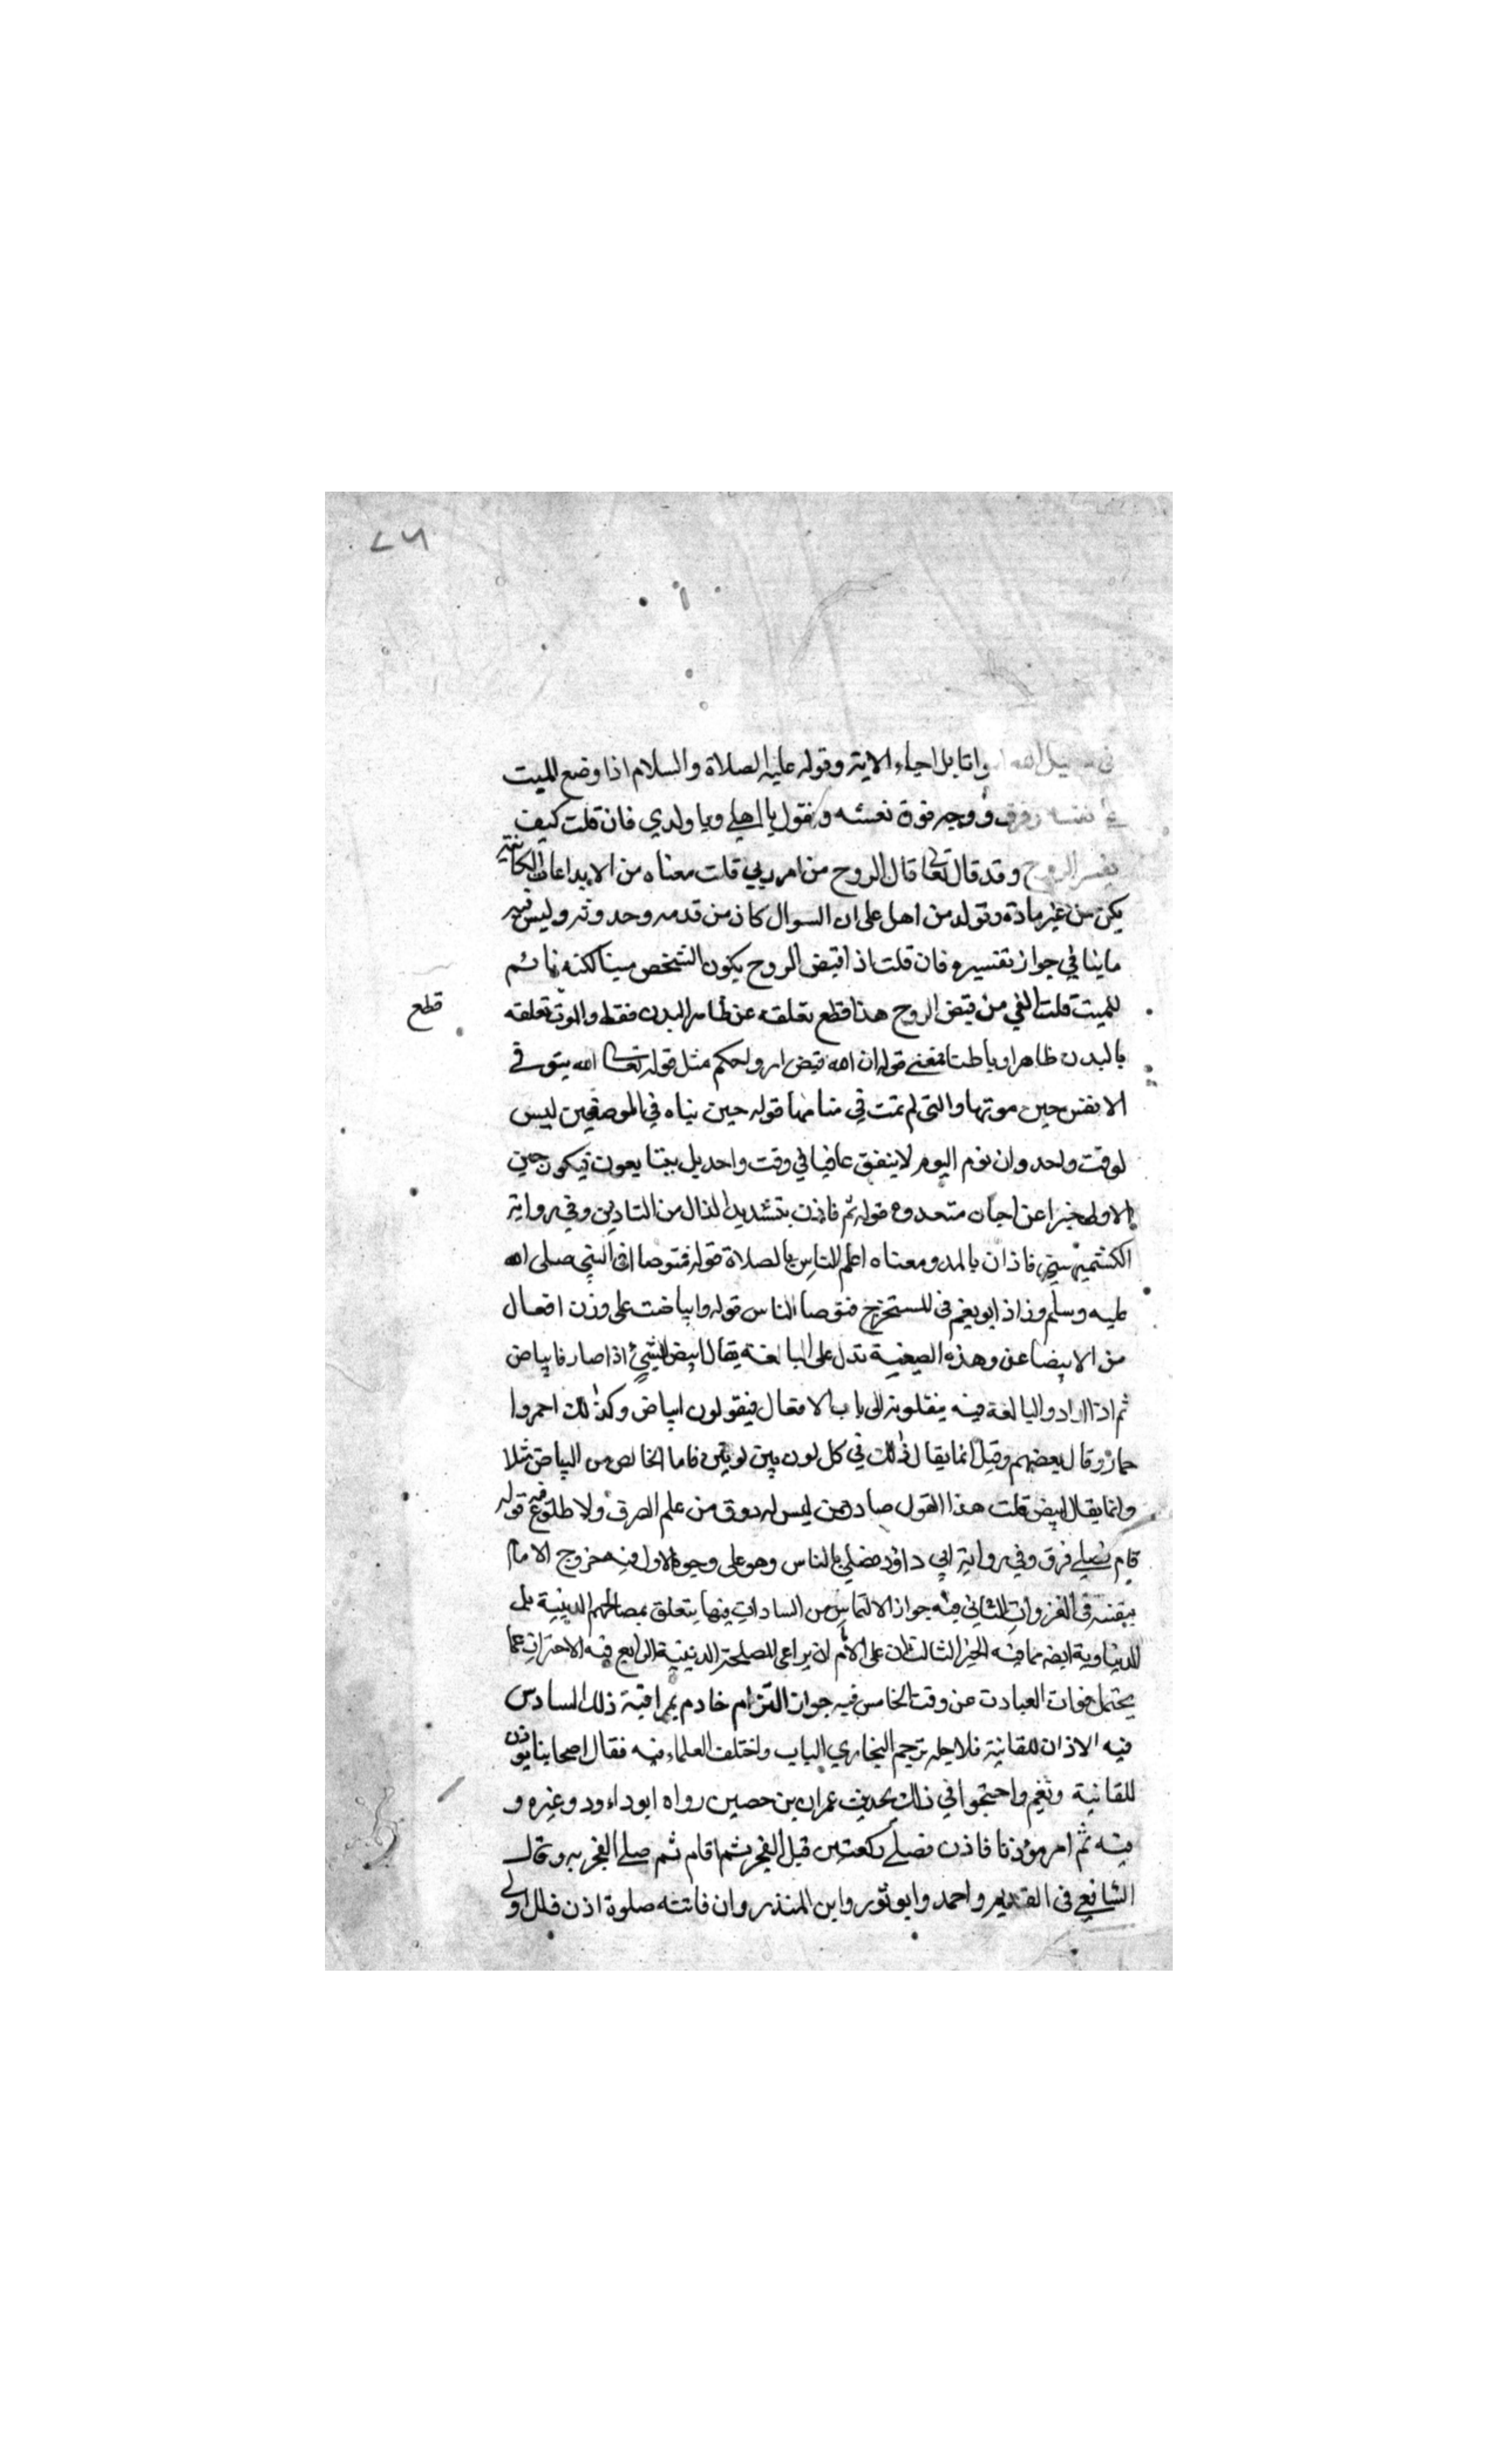 ٧٦
في سبيل الله امواتا بل احياء الاية وقوله عليه الصلاة والسلام اذا وضع الميت
نعشه رفرف روحه فوق نعشه ويقول يا اهلي ويا ولدي فان قلت كيف
يفسر الروح وقد قال تعالى قال الروح من امر ربي قلت معناه من الابداعات الكائنة
يكن من غير مادة وتولد من اهل على ان السوال كان من قدمه وحدوثه وليس فيه
ما ينافي جواز تفسيره فان قلت اذا قبض الروح يكون الشخص ميتا لكنه نائم
للميت قلت المعني من قبض الروح هذا قطع تعلقه عن ظاهر البدن فقط والموت تعلقه
قطع
بالبدن ظاهرا وباطنا فمعني قوله ان الله قبض ارواحكم مثل قوله تعالى الله يتوفى
الانفس حين موتها والتي لم تمت في منامها قوله حين بناه في الموضعين ليس
لوقت واحد وان نوم اليوم لا يتفق غالبا في وقت واحد بل يتتابعون فيكون حين
الاولى خبرا عن احيان متعدده قوله ثم فاذن بتشديد الذال من التاذين وفي رواية
الكشتميهني فاذان بالمد ومعناه اعلم الناس بالصلاة قوله فتوضا اي النبي صلى الله
عليه وسلم وزاد ابو نعيم في المستخرج فتوضا الناس قوله وابياضت على وزن افعال
من الابيضاض وهذه الصيغية تدل على المبالغة يقال ابيض الشيئ اذا صار ذا بياض
ثم اذا ارادوا المبالغة فيه ينقلونه الى باب الافعال فيقولون ابياض وكذلك احمروا
حمار وقال بعضهم وقيل انما يقال ذلك في كل لون بين لونين فاما الخالص من البياض مثلا
وانما يقال ابيض قلت هذا القول صادر ممن ليس له ذوق من علم الصرف ولا طلوع فيه قوله
قام فصلى فرق وفي رواية ابي داؤد فصلى بالناس وهو على وجوه الاول فيه خروج الامام
بنفسه في الغزوات الثاني فيه جواز الالتماس من السادات فيما يتعلق بمصالحهم الدينية بل
الدنياوية ايضا مما فيه الخير الثالث ان على الامام ان يراعى المصلحة الدينية الرابع فيه الاحتراز عما
يحتمل فوات العبادت عن وقت الخامس فيه جواز التزام خادم بمراقبة ذلك السادس
فيه الاذان للفانية فلاجله ترجم البخاري الباب واختلف العلماء فيه فقال اصحابنا يوذن
للفانية وتقيم واحتجوا في ذلك بحديث عمران بن حصين رواه ابو داءود وغيره و
فيه ثم امر مؤذنا فاذن فصلى ركعتين قبل الفجر ثم اقام ثم صلى الفجر به وقال
الشافعي في القديم واحمد وابو ثور وابن المنذر وان فاتته صلوة اذن فللاولى